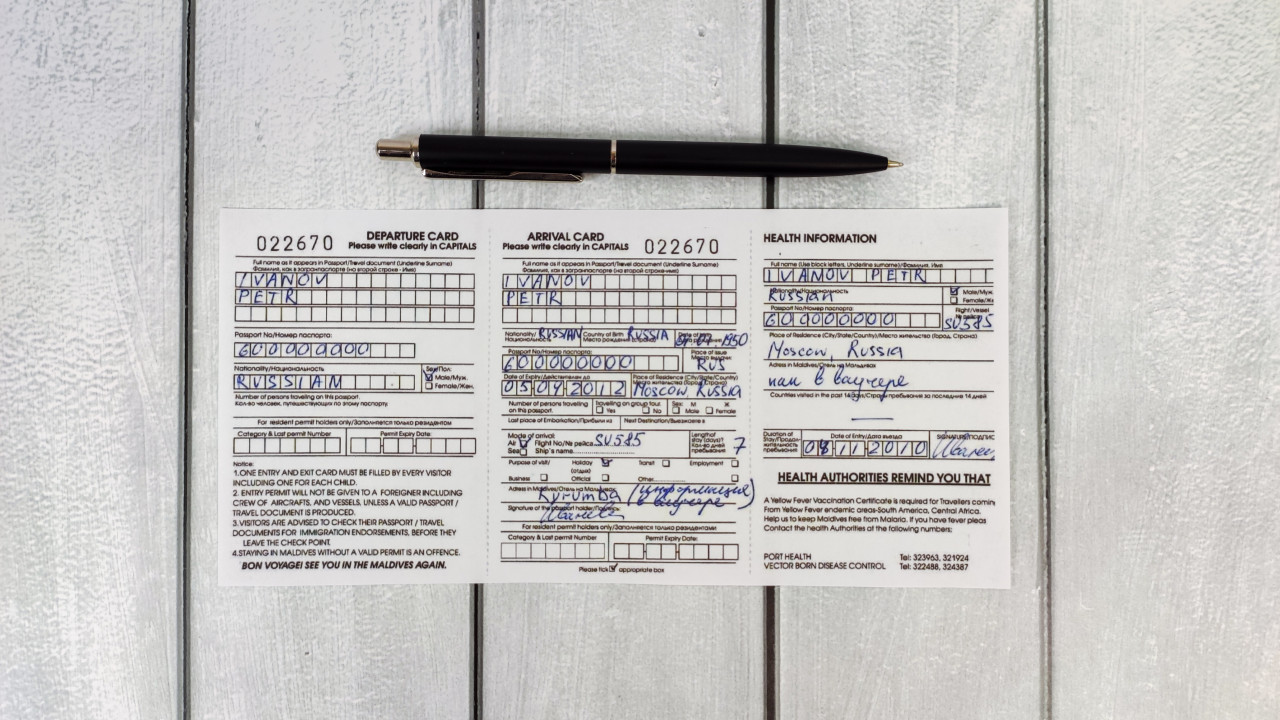 022670
DEPARTURE CARD
Please write clearly in CAPITALS
Full name as it appears in Passport/Travel document (Underline Surname)
Фамилия, как в загранпаспорте (на второй строке - Имя)
IVANOV
PETR
Passport No/Номер паспорта:
600000000
Nationality/Национальность
RUSSIAN
Sex/Пол:
Male/Муж.
Female/Жен.
Number of persons travelling on this passport.
Кол-во человек, путешествующих по этому паспорту.
For resident permit holders only/Заполняется только резидентом
Category & Last permit Number
Permit Expiry Date:
Notice:
1.ONE ENTRY AND EXIT CARD MUST BE FILLED BY EVERY VISITOR
INCLUDING ONE FOR EACH CHILD.
2. ENTRY PERMIT WILL NOT BE GIVEN TO A FOREIGNER INCLUDING
CREW OF AIRCRAFTS, AND VESSELS, UNLESS A VALID PASSPORT /
TRAVEL DOCUMENT IS PRODUCED.
3.VISITORS ARE ADVISED TO CHECK THEIR PASSPORT / TRAVEL
DOCUMENTS FOR IMMIGRATION ENDORSEMENTS, BEFORE THEY
LEAVE THE CHECK POINT.
4.STAYING IN MALDIVES WITHOUT A VALID PERMIT IS AN OFFENCE.
BON VOYAGE! SEE YOU IN THE MALDIVES AGAIN.
ARRIVAL CARD
Please write clearly in CAPITALS
022670
Full name as it appears in Passport/Travel document (Underline Surname)
Фамилия, как в загранпаспорте (на второй строке-имя)
IVANOV
PETR
Nationality/
Национальность
RUSSIAN
Country of Birth
Место рождения
RUSSIA
1950
Passport No/Номер паспорта:
600000000
Place of issue
RUS
Date of Expiry/Действителен до
05042012
Place of Residence (City/State/Country)
Место жительства (Город, Страна)
MOSCOW, RUSSIA
Number of persons travelling
on this passport.
Travelling on group tour
Yes
No
Sex:
М
Ж
Male
Female
Last place of Embarkation/Прибыли из
Next Destination/Выезжаете в
Mode of arrival:
Air
Flight No/№ рейса
SU585
Sea
Ship's name
Length of
stay (days)/
Кол-во дней
пребывания
7
Purpose of visit/
Holiday
(отдых)
Transit
Employment
Business
Official
Other
Adress in Maldives/Отель на Мальдивах
Kurumba (информация
в ваучере)
Signature of the passport holder/Подпись
For resident permit holders only/Заполняется только резидентами
Category & Last permit Number
Permit Expiry Date:
Please tick appropriate box
HEALTH INFORMATION
Full name (Use block letters, Underline surname)/Фамилия, Имя
IVANOV PETR
Nationality/Национальность
Russian
Male/Муж.
Female/Же
Passport No/Номер паспорта:
600000000
Flight/Vessel
SU585
Place of Residence (City/State/Country)/Место жительства (Город, Страна)
Moscow, Russia
Adress in Maldives/Отель на Мальдивах
как в ваучере
Countries visited in the past 14 days/Страны пребывания за последние 14 дней
Duration of
Stay/Продол-
жительность
пребывания
Date of Entry/Дата въезда
08112010
SIGNATURE/ПОДПИС
HEALTH AUTHORITIES REMIND YOU THAT
A Yellow Fever Vaccination Certificate is required for Travellers comin
From Yellow Fever endemic areas-South America, Central Africa.
Help us to keep Maldives free from Malaria. If you have fever pleas
Contact the health Authorities at the following numbers:
PORT HEALTH
Tel: 323963, 321924
VECTOR BORN DISEASE CONTROL
Tel: 322488, 324387